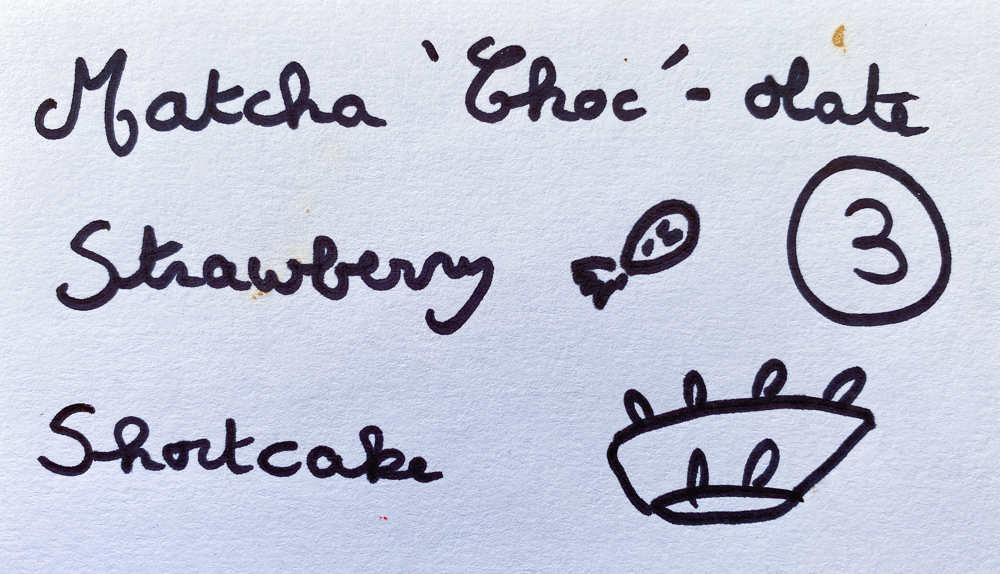 Matcha 'Choc'- olate
Strawberry 3
Shortcake